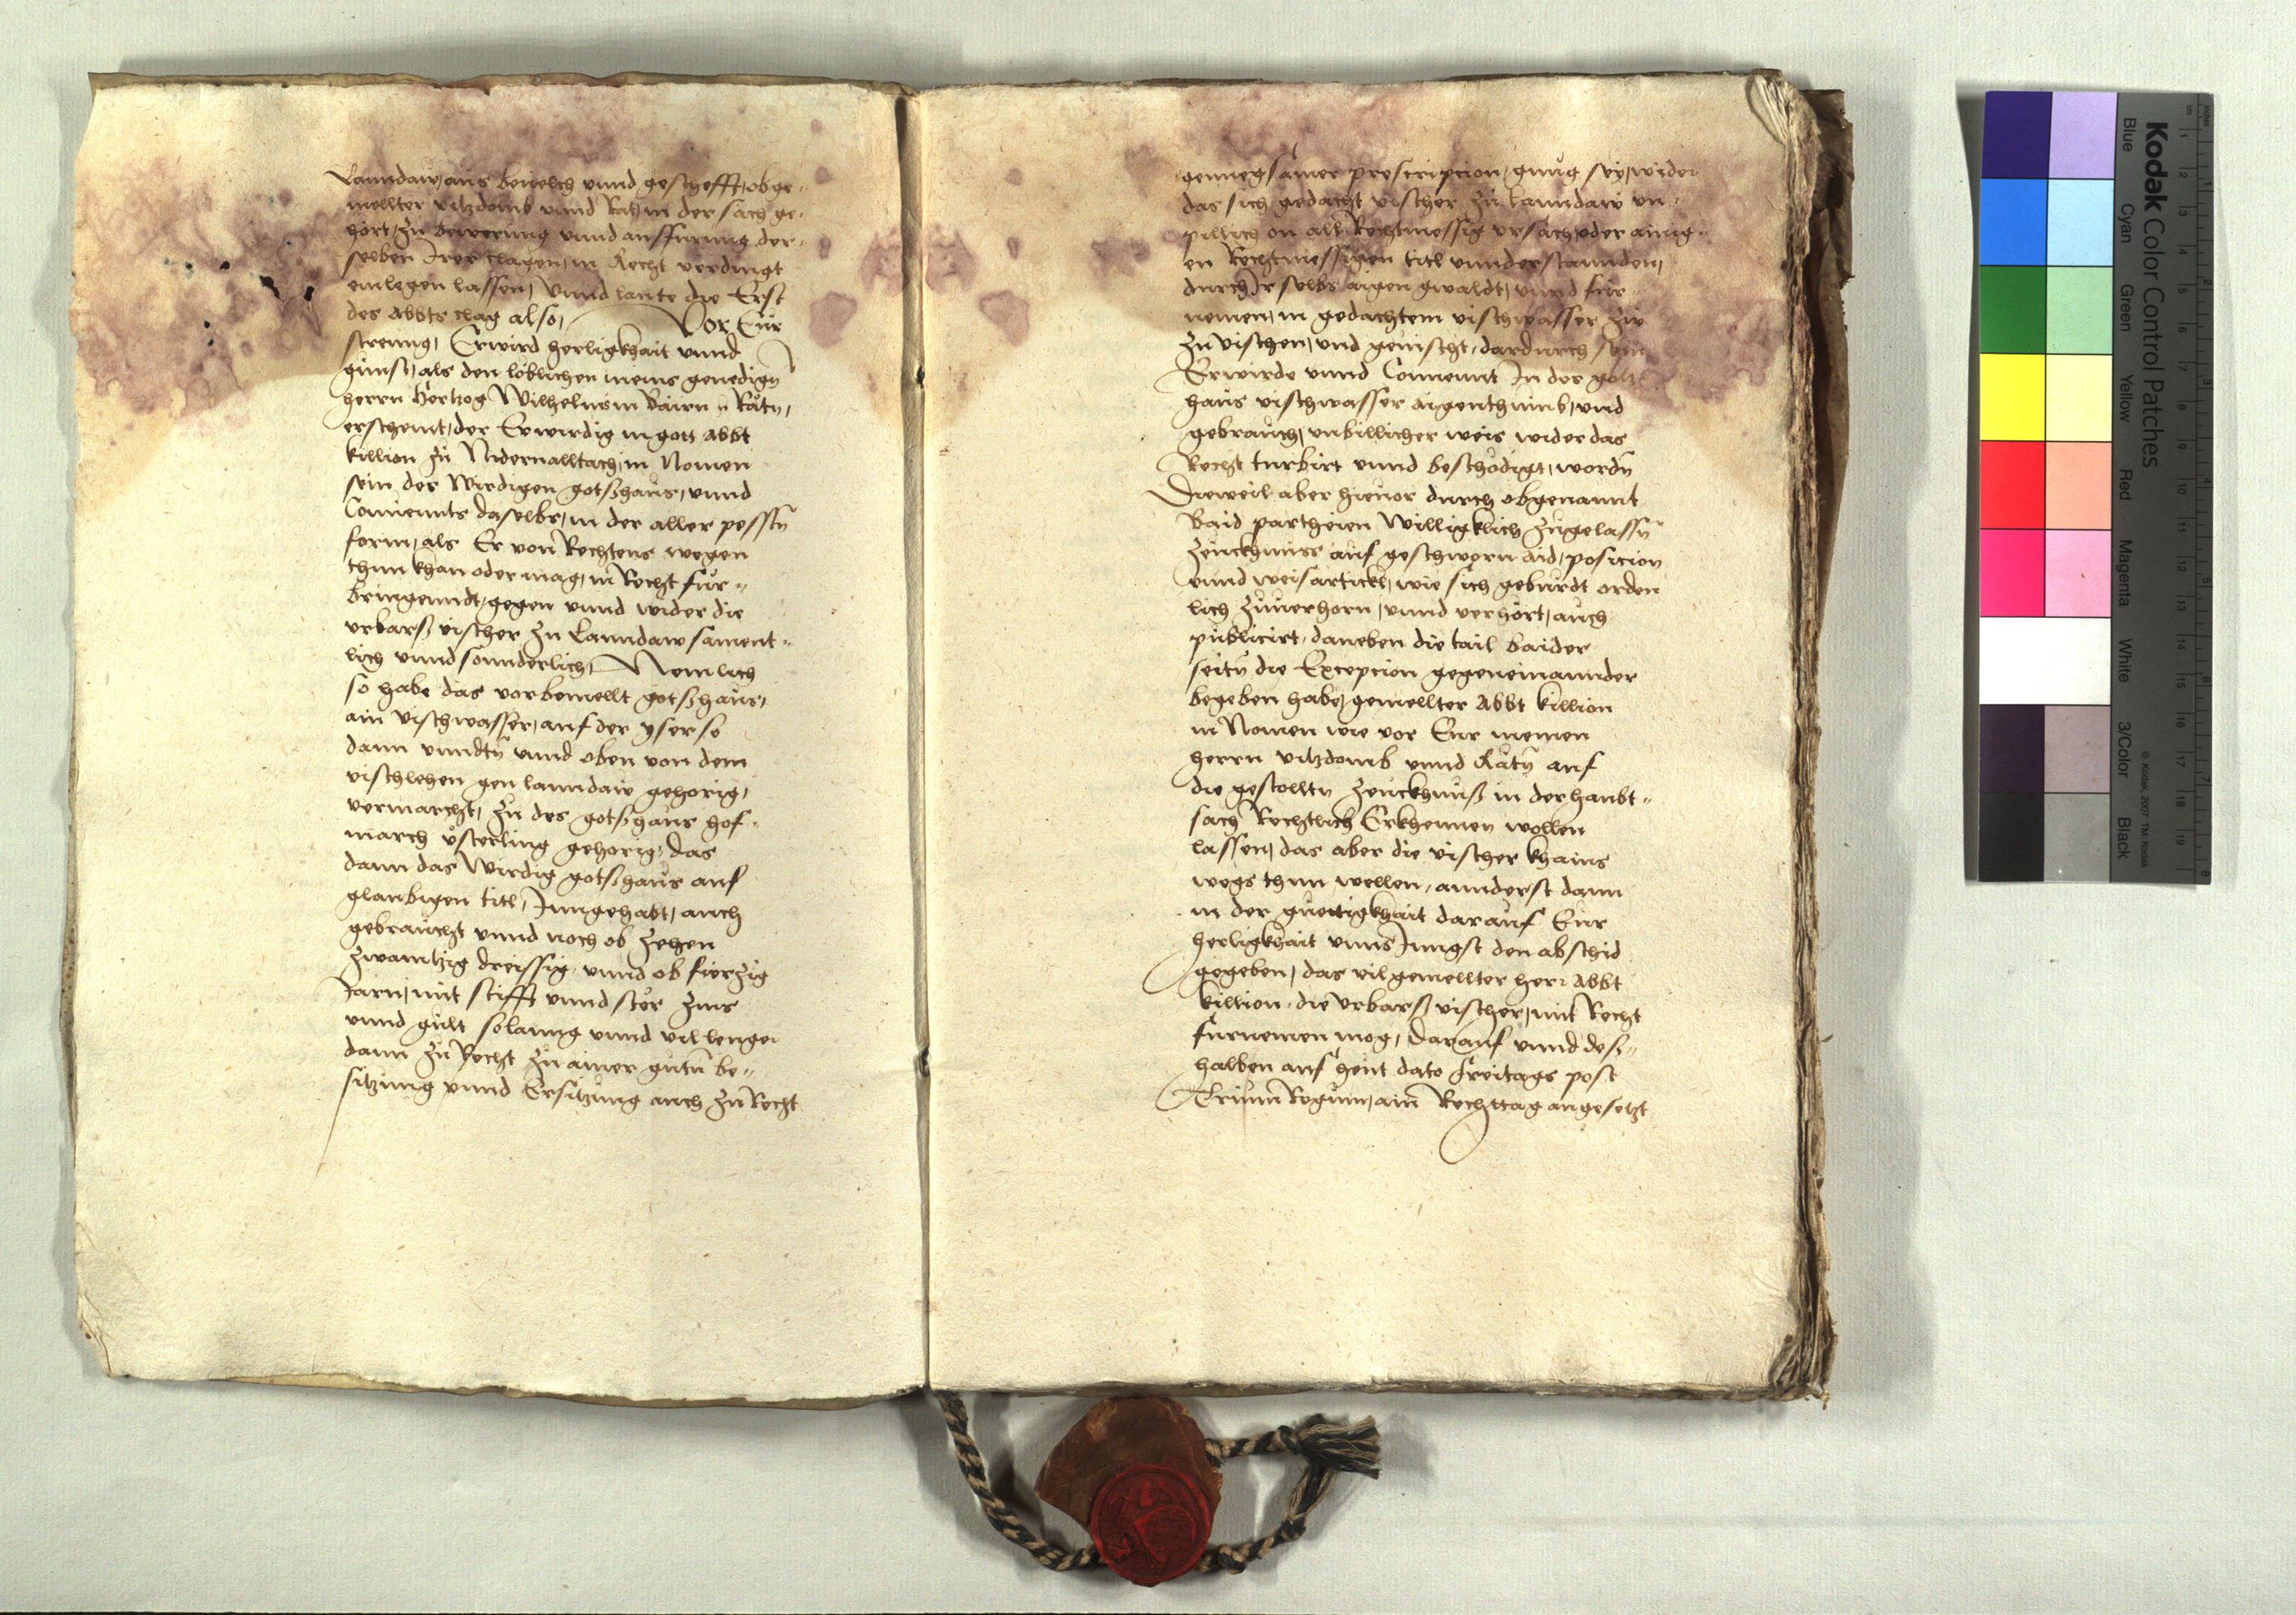 Lanndaw, aus bevelch vnnd gescheffft, obge-
mellter vitzdomb vnnd Rat, in der sach ge-
hört, zu bewerung vnnd ausfurung der-
selben Irer clagen, in Recht verdingt
einlegen lassen, Vnnd laute die Erst
des Abbts clag also, Vor Eur
streng, Erwird herligkhait vnnd
gunst, als den löblichen meins genedign
herrn Hertzog Wilhelmsn Bairn Rätn,
erscheint, der Erwirdig in gott Abbt
killion zu Nidernalltach, in Nomen
sein des Wirdigen gotßhaus, vnnd
Conuennts daselbs, in der aller pesstn
form, als Er von Rechtens wegen
thun khan oder mag, in Recht fur-
bringenndt, gegen vnnd wider die
vrbarß vischer zu Lanndaw sament-
lich vnnd sonnderlich, Nemlich
so habe das vorbemellt gotßhaus,
ain vischwasser, auf der yser so
dann vnndtn vnnd oben von dem
vischlehen gen lanndaw gehorig,
vermarcht, zu des gotßhaus hof-
march ůsterling gehorig, das
dann das Wirdig gotßhaus auf
glaubigen titl, Inngehabt, auch
gebraucht vnnd noch ob zehen
zwantzig dreissig vnnd ob fierzig
Jarn, mit stifft vnnd stör zins
vnnd gült solanng vnnd vil lenger
dann zu Recht zu ainer gutn be-
sitzung vnnd Ersitzung auch zu Recht
genuegsamer prescripcion, gnug sey, wider
das sich gedacht vischer zu Lanndaw vn-
pillich on all Rechtmessig vrsach, oder ainig-
en Rechtmessigen titl vnnderstannden,
durch Ir selbs aigen gwaldt, vnnd fur-
nemen, in gedachtem vischwasser zw
zu vischen, vnd gevischt, dardurch sein
Erwirde vnnd Conuennt In des gotz-
haus vischwasser aigenthumb, vnd
gebrauch, vnbillicher weis wider das
Recht turbirt vnnd beschödigt, wordn
Dieweil aber hieuor durch obgenannt
Baid partheien Willigklich zugelassn
zeuckhnuss auf geschworn aid, posicion
vnnd weisartickl, wie sich geburdt orden
lich zuuerhorn, vnnd verhört, auch
publicirt, daneben die tail baider
seitn die Excepcion gegeneinannder
begeben habe, gemellter Abbt killion
in Nomen wie vor Eur meinen
herrn vitzdomb vnnd Rätn auf
die gestölltn zeuckhnuß in der haubt-
sach Rechtlich Erkhennen wöllen
lassen, das aber die vischer khains
wegs thun wellen, annderst dann
in der guettigkhait darauf Eur
herligkhait vnns Jungst den abschid
gegeben, das vilgemellter herr Abbt
killion, die vrbarß vischer, mit Recht
furnemen mog, Darauf vnnd deß-
halben auf heut dato freitags post
Trium Regum, ain Rechttag angesetzt
Kodak Color Control Patches
Blue Cyan Green Yellow Red Magenta White 3/Color Black
© Kodak, 2007 TM: Kodak